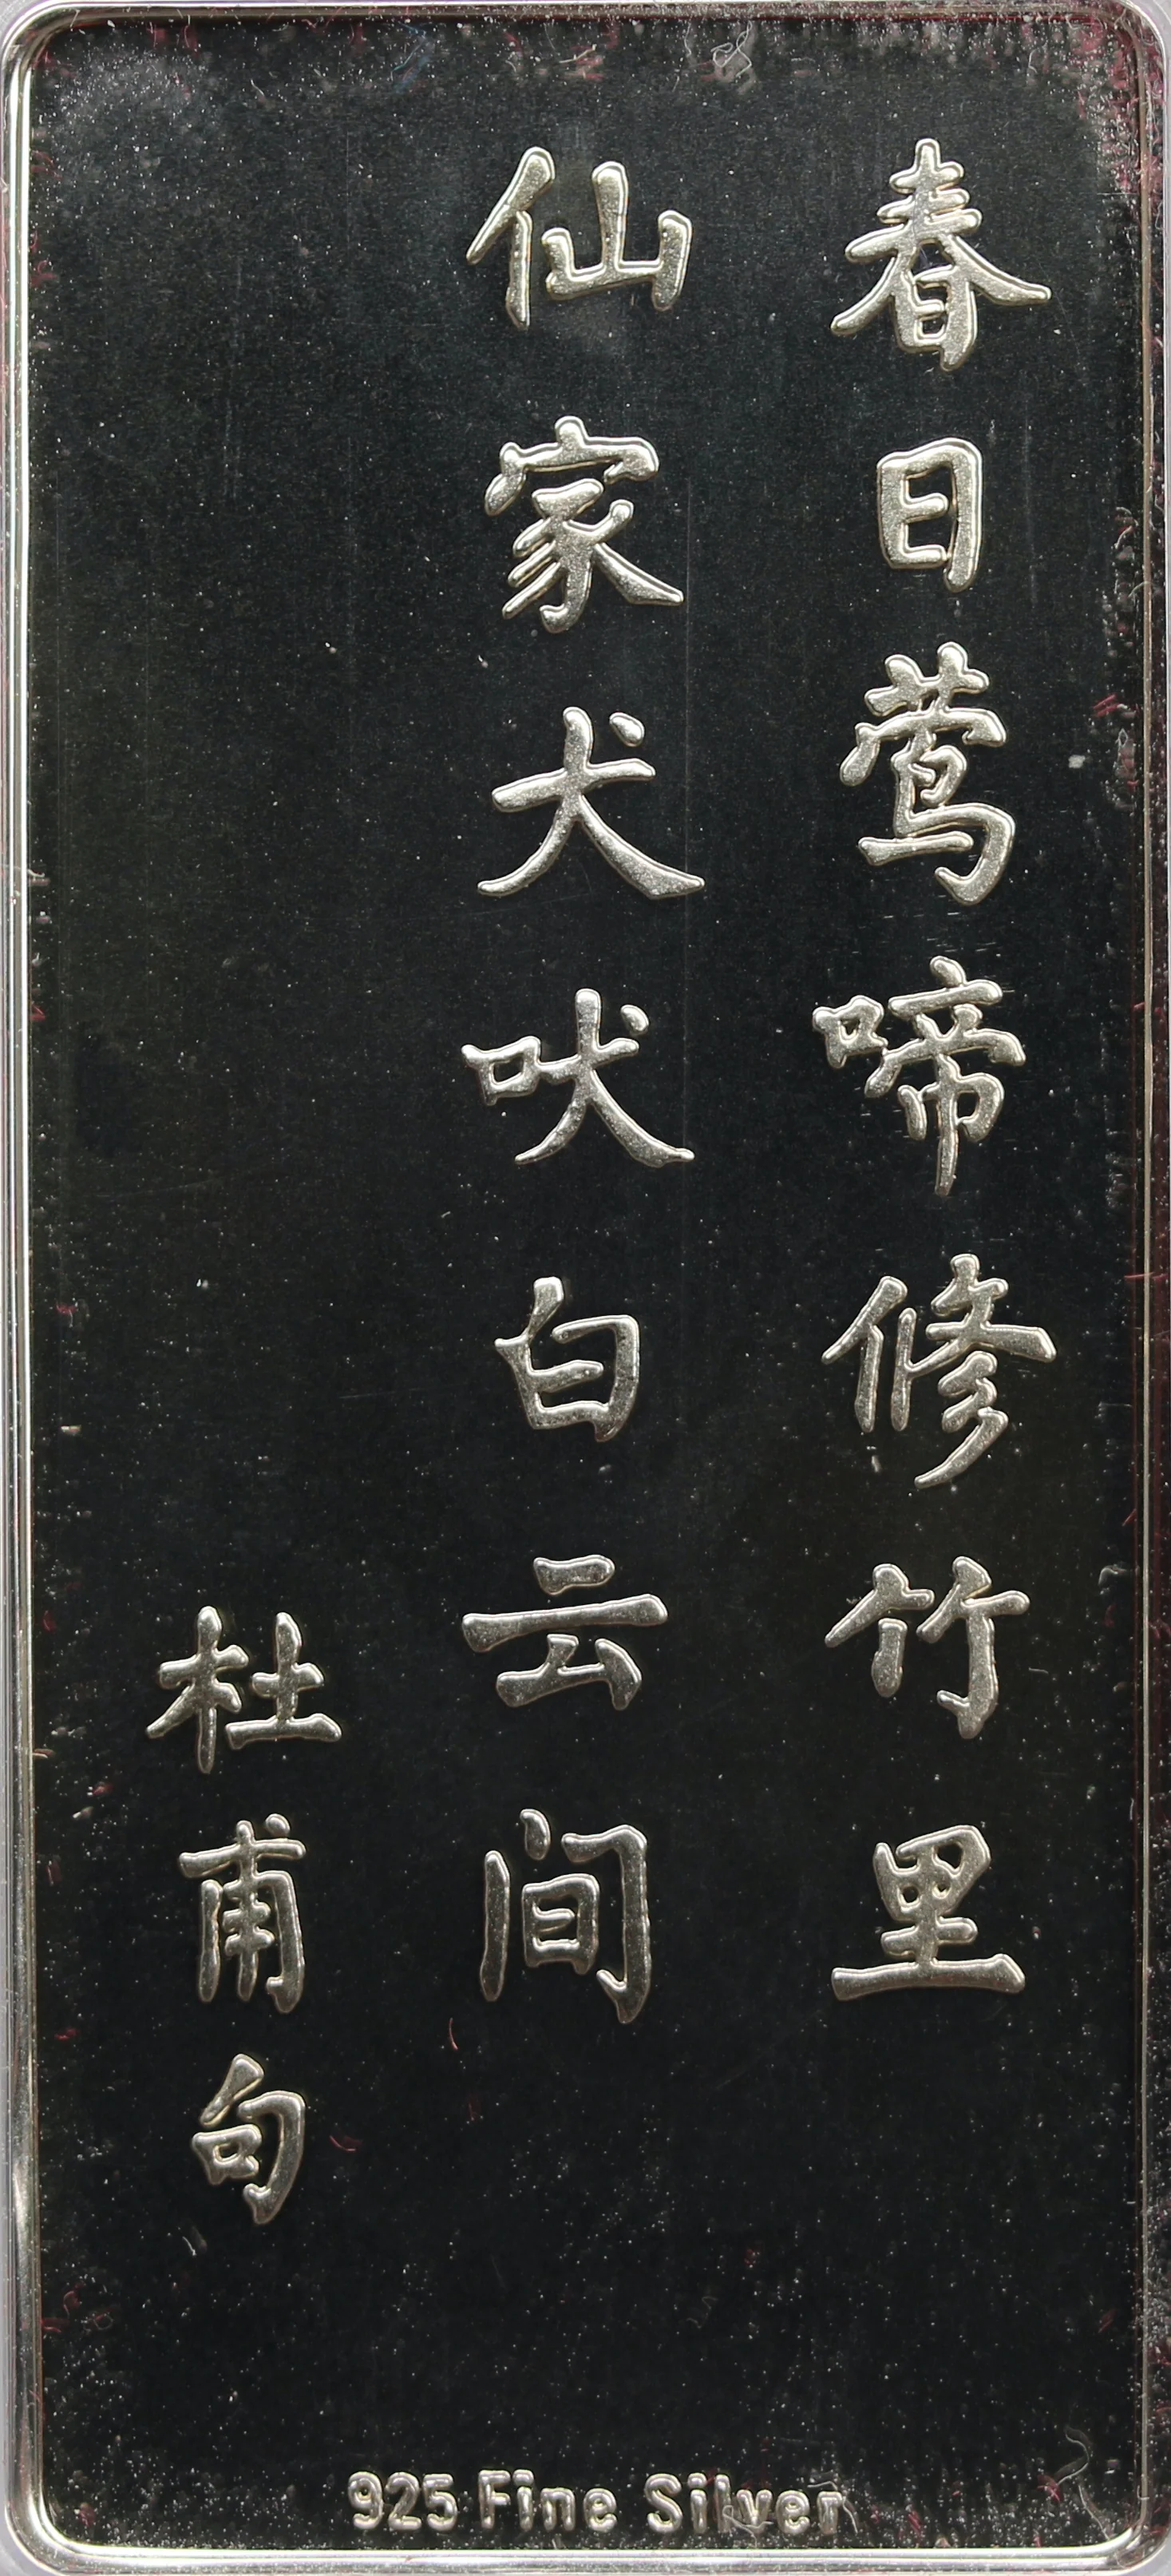 春日莺啼修竹里
仙家犬吠白云间
杜甫句
925 Fine Silver